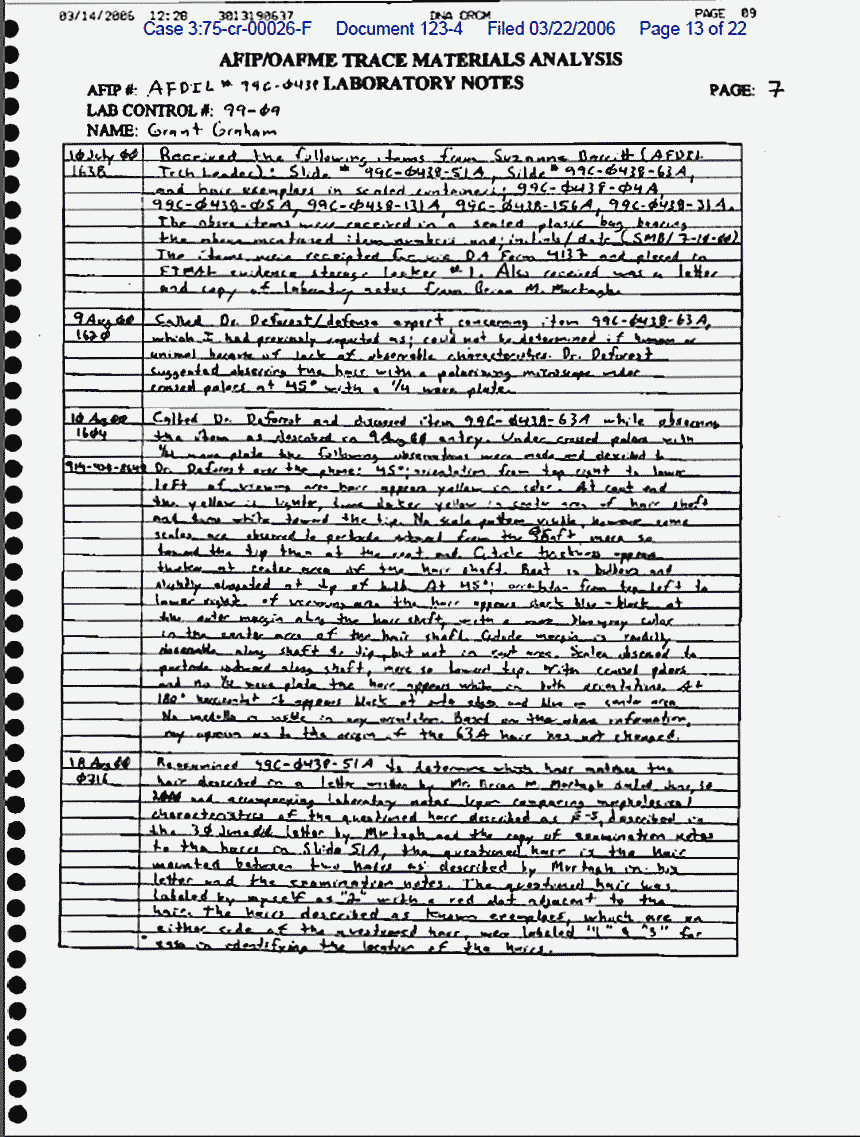 03/14/2006 12:28 3013190637 DNA CRCM PAGE 09
Case 3:75-cr-00026-F Document 123-4 Filed 03/22/2006 Page 13 of 22
AFIP/OAFME TRACE MATERIALS ANALYSIS
LABORATORY NOTES
AFIP #: AFDIL # 99C-Ø438
PAGE: 7
LAB CONTROL #: 99-Ø9
NAME: Grant Graham
1Ø July ØØ Received the following items from Suzanne Barritt (AFDIL
1638 Tech Leader): Slide # 99C-Ø438-51A, Slide # 99C-Ø438-63A,
and hair exemplars in sealed containers; 99C-Ø438-Ø4A,
99C-Ø438-Ø5A, 99C-Ø438-131A, 99C-Ø438-156A, 99C-Ø438-31A.
The above items were received in a sealed plastic bag bearing
the above mentioned item numbers and; initials/date (SMB/7-10-00)
The items were receipted for via DA Form 4137 and placed in
evidence storage locker #1. Also received was a letter
and copy of laboratory notes from Brian M. Murtagh.
9 Aug ØØ Called Dr. Deforest/defense expert concerning item 99C-Ø438-63A,
162Ø which I had previously reported as; could not be determined if human or
animal because of lack of observable characteristics. Dr. Deforest
suggested observing the hair with a polarizing microscope under
crossed polars at 45° with a 1/4 wave plate.
1Ø Aug ØØ Called Dr. Deforest and discussed item 99C-Ø438-63A while observing
16Ø4 the item as described in 9 Aug ØØ entry. Under crossed polars with
1/4 wave plate the following observations were made and described to
Dr. Deforest over the phone: 45°; orientation from top right to lower
left of viewing area hair appears yellow in color. At root end
the yellow is lighter, turns darker yellow in center area of hair shaft
and turns white toward the tip. No scale pattern visible, however some
scales are observed to protrude outward from the shaft, more so
toward the tip than at the root end. Cuticle thickness appears
thicker at center area of the hair shaft. Root is bulbous and
slightly elongated at tip of bulb. At 45°; orientation from top left to
lower right of viewing area the hair appears dark blue-black at
the outer margin along the hair shaft, with a blue/gray color
in the center area of the hair shaft. Cuticle margin is readily
observable along shaft to tip, but not in root area. Scales observed to
protrude outward along shaft, more so toward tip. With crossed polars
and no 1/4 wave plate the hair appears white in both orientations. At
180° horizontal it appears black at outer edges and blue in center area.
No medulla is visible in any orientation. Based on the above information,
my opinion as to the origin of the 63A hair has not changed.
18 Aug ØØ Reexamined 99C-Ø438-51A to determine which hair matches the
Ø716 hair described in a letter written by Mr. Brian M. Murtagh dated June, 30
2000 and accompanying laboratory notes. Upon comparing morphological
characteristics of the questioned hair described as described in
the 3Ø June ØØ letter by Murtagh and the copy of examination notes
to the hairs in Slide 51A, the questioned hair is the hair
mounted between two hairs as described by Murtagh in his
letter and the examination notes. The questioned hair was
labeled by myself as "2" with a red dot adjacent to the
hair. The hairs described as known exemplars, which are on
either side of the questioned hair, were labeled "1" & "3" for
ease in identifying the location of the hairs.